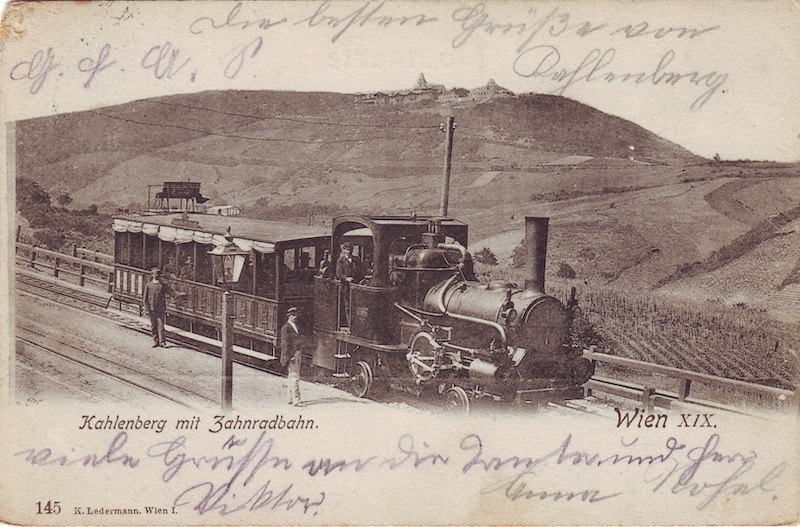 Die besten Grüße von
Kahlenberg.
G. f A. S
Kahlenberg mit Zahnradbahn.
Wien XIX.
viele Grüsse an die Tante und Herr
Viktor.
Anna
145 K. Ledermann, Wien I.